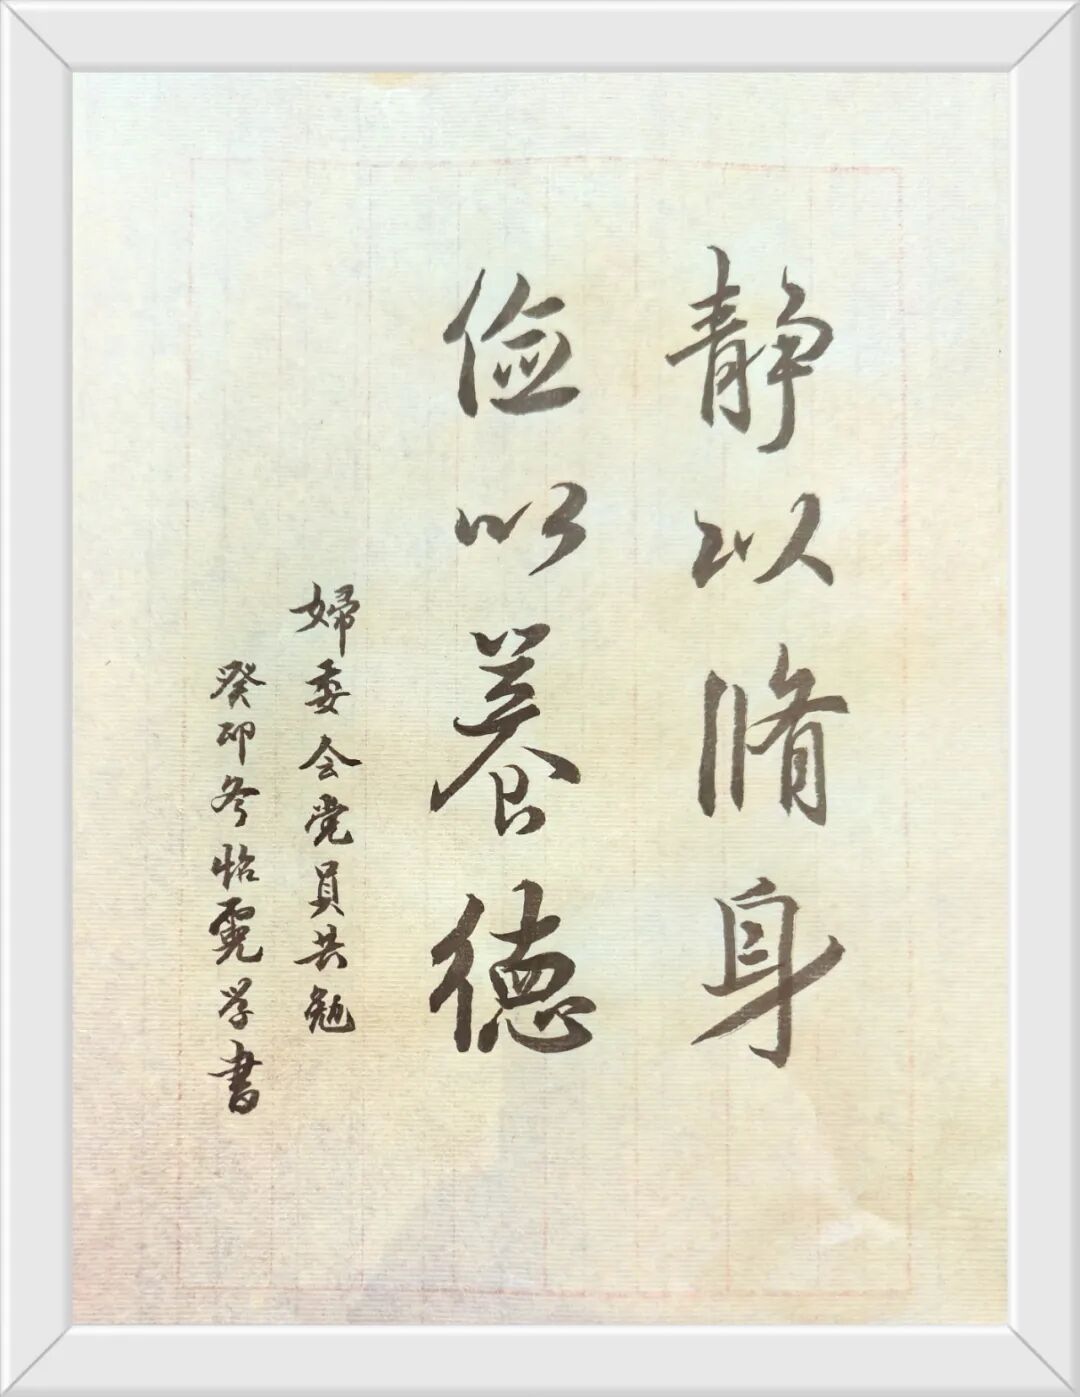 静以脩身
俭以養德
婦委会党員共勉
癸卯冬怡霓学書